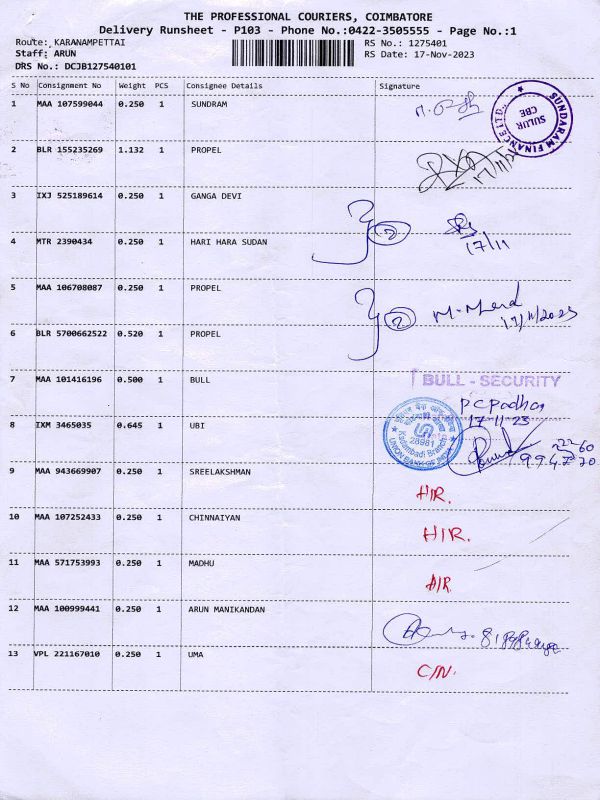 THE PROFESSIONAL COURIERS, COIMBATORE
Delivery Runsheet - P103 - Phone No.:0422-3505555 - Page No.:1
Route: KARANAMPETTAI RS No.: 1275401
Staff: ARUN RS Date: 17-Nov-2023
DRS No.: DCJB127540101
S No Consignment No Weight PCS Consignee Details Signature
1 MAA 107599044 0.250 1 SUNDRAM
SUNDARAM FINANCE LTD.,
SULUR
CBE
2 BLR 155235269 1.132 1 PROPEL
17/11/2
3 IXJ 525189614 0.250 1 GANGA DEVI
2
17/11
4 MTR 2390434 0.250 1 HARI HARA SUDAN
5 MAA 106708087 0.250 1 PROPEL
2
17/11/2023
6 BLR 5700662522 0.520 1 PROPEL
7 MAA 101416196 0.500 1 BULL
BULL - SECURITY
P C Padhan
17-11-23
8 IXM 3465035 0.645 1 UBI
28981
Kadambadi Branch
UNION BANK OF INDIA
9 MAA 943669907 0.250 1 SREELAKSHMAN
H/R.
10 MAA 107252433 0.250 1 CHINNAIYAN
H/R.
11 MAA 571753993 0.250 1 MADHU
A/R
12 MAA 100999441 0.250 1 ARUN MANIKANDAN
13 VPL 221167010 0.250 1 UMA
C/N.